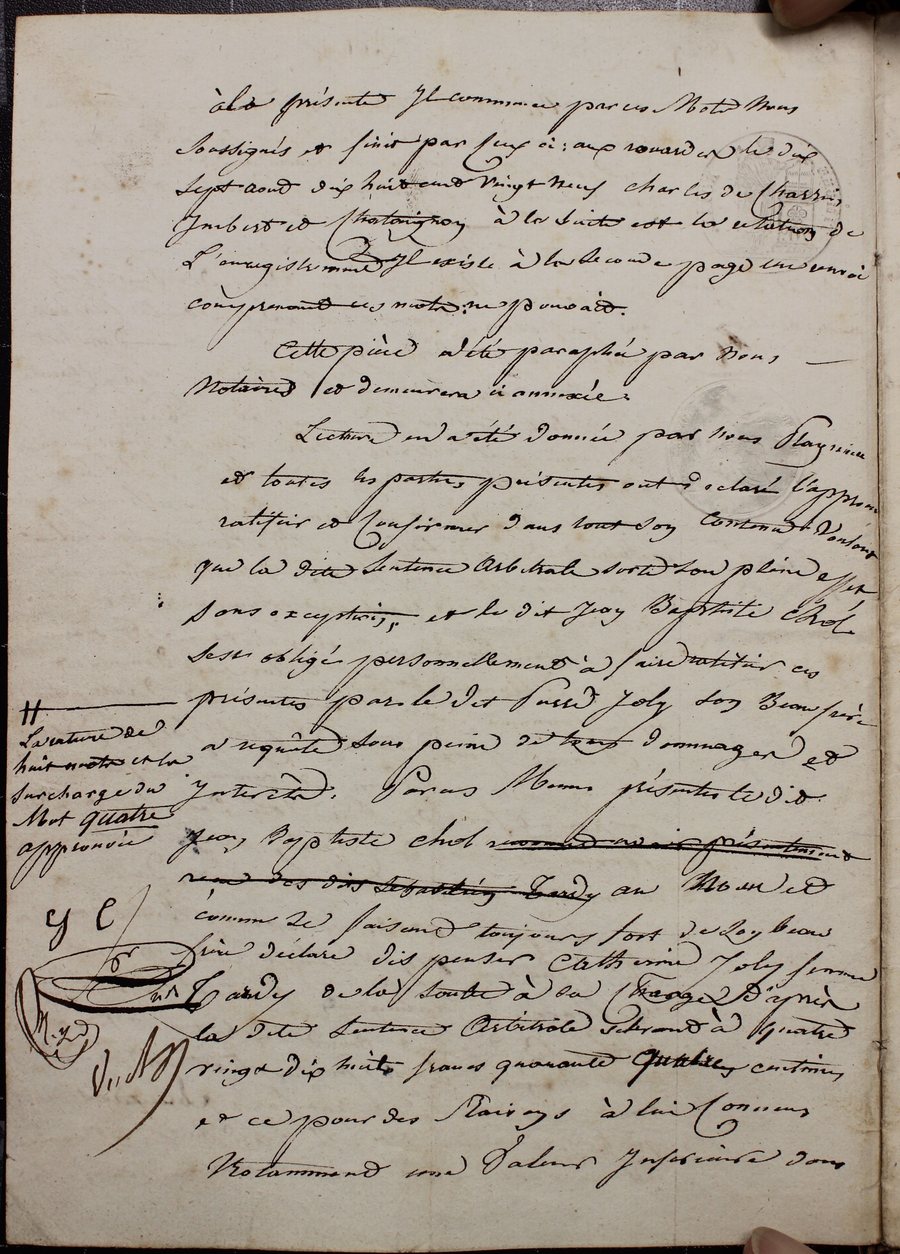 à la présente Il commence par ces Mots Nous
Soussignés et finit par ceux ci: aux le dix
sept aout dix huit cent vingt neuf Charles de Charrin
Imbert et Chataignon à la suite est la relation de
L'enregistrement Il existe à la seconde page un renvoi
comprenant ces mots: ne pouvait.
Cette pièce a été paraphée par nous
Notaires et demeurera ci annexée.
Lecture en a été donnée par nous
et toutes les parties présentes ont déclaré l'approuver
ratifier et Confirmer dans tout son Contenu Voulant
que la dite Sentence Arbitrale sorte son plein effet
sans exception, et le dit Jean Baptiste Chol
s'est obligé personnellement à faire ratifier ces
présentes par le dit Pierre Joly son Beau frère
a requête sous peine de tous dommages et
Interets. Par ces Memes présentes le dit
Jean Baptiste Chol reconnait avoir présentement
reçu des dits Sébastien Tardy au Nom et
comme se faisant toujours fort de Joly beau
frère déclare dispenser Catherine Joly femme
Tardy de la soulte à sa Charge D'après
la dite Sentence Arbitrale se portant à quatre
vingt dix huit francs quarante quatre centimes
et ce pour des Raisons à lui Connues
Notamment une Valeur Inférieure dans
La rature de
huit mots et la
surcharge du
Mot quatre
approuvée